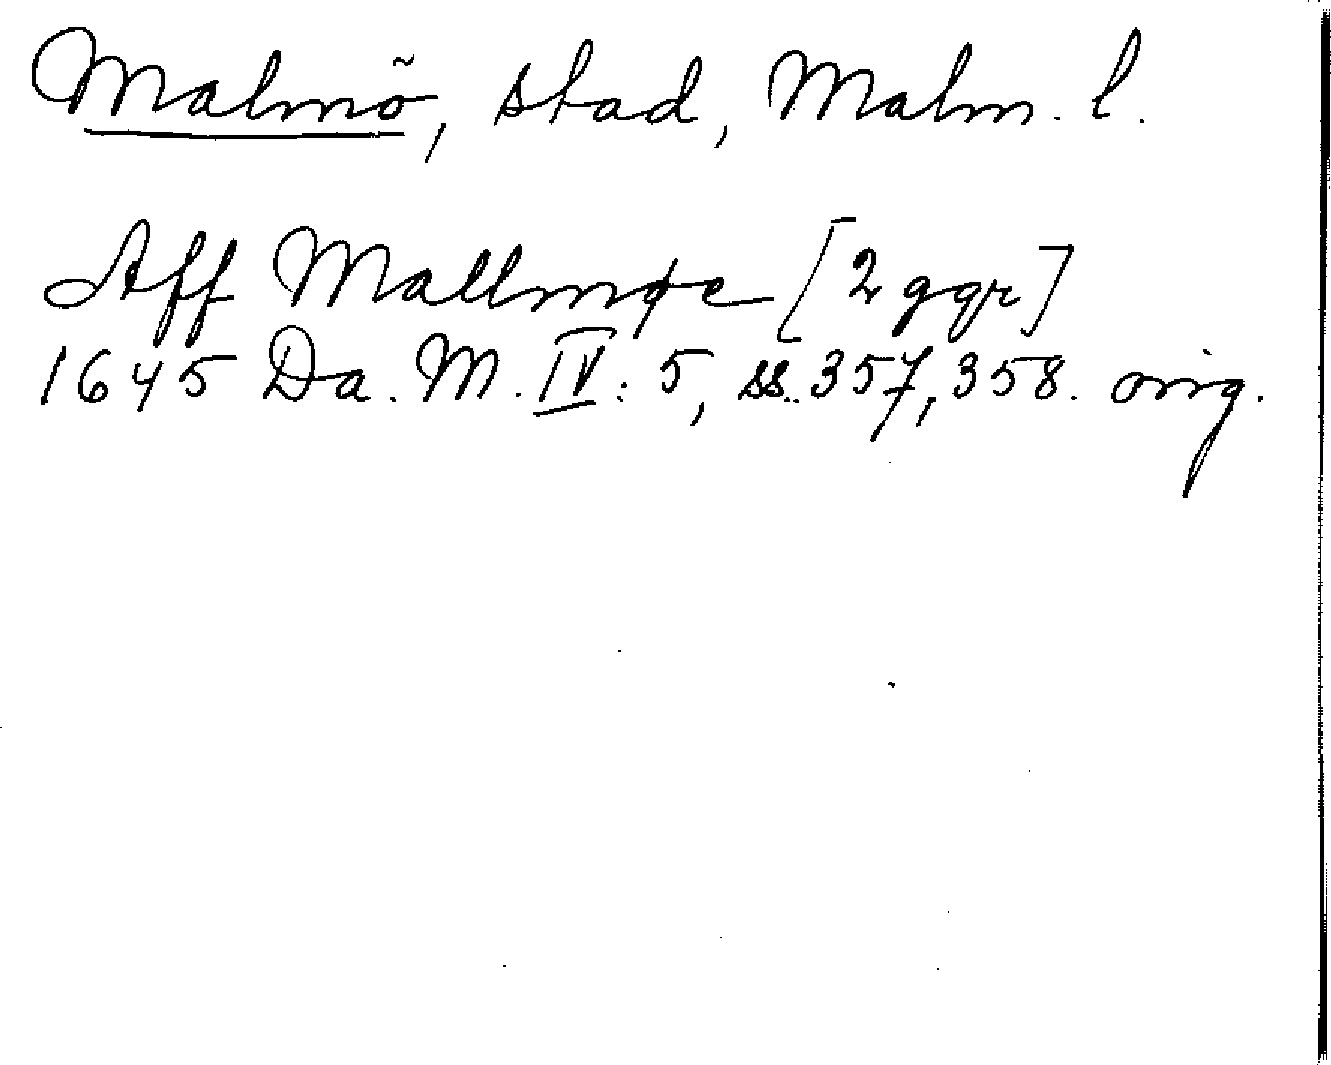 Malmö, stad, Malm. l.
Aff Mallmøe [2 ggr]
1645 Da. M. IV: 5, ss. 357, 358. orig.